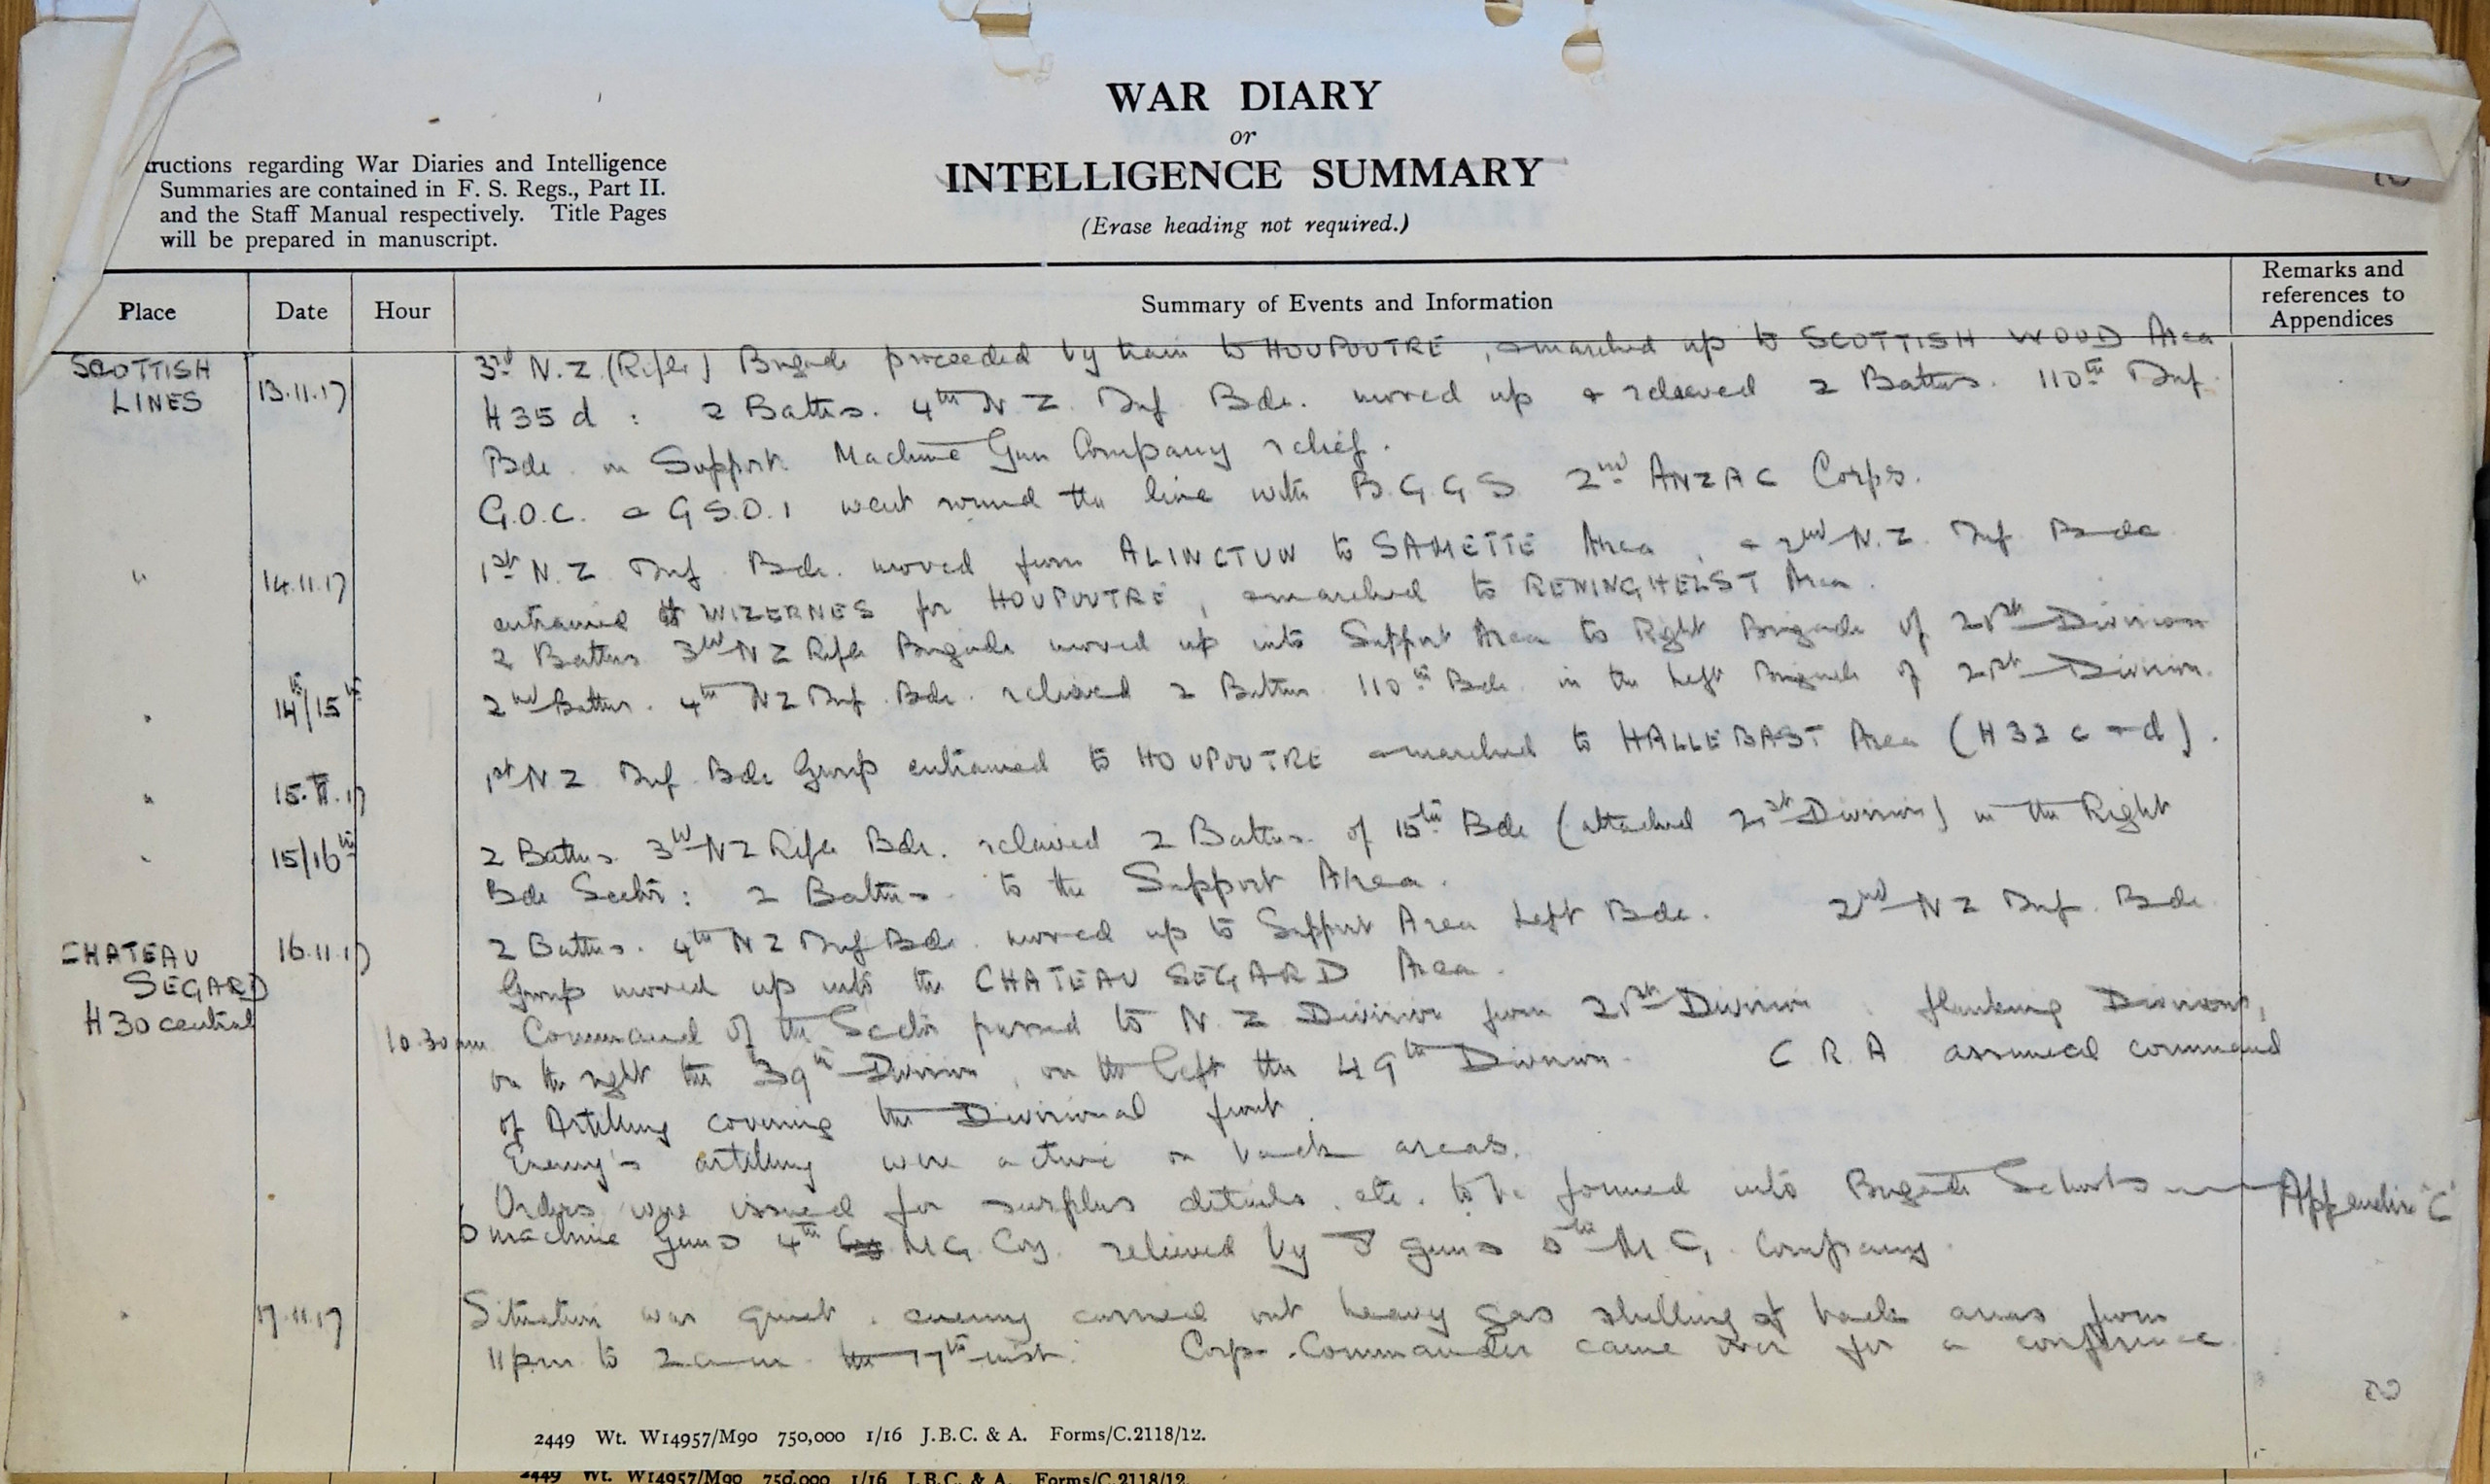 WAR DIARY
or
INTELLIGENCE SUMMARY
(Erase heading not required.)
ructions regarding War Diaries and Intelligence
Summaries are contained in F. S. Regs., Part II.
and the Staff Manual respectively. Title Pages
will be prepared in manuscript.
Place Date Hour Summary of Events and Information Remarks and references to Appendices
SCOTTISH LINES 13.11.17 3rd N.Z. (Rifle) Brigade proceeded by train to HOUPOUTRE, & marched up to SCOTTISH WOOD Area
H35d : 2 Battns. 4th N Z. Inf. Bde. moved up & relieved 2 Battns. 110th Inf.
Bde in Support. Machine Gun Company relief.
G.O.C. & G.S.O.1 went round the line with B.G.G.S. 2nd ANZAC Corps.
" 14.11.17 1st N.Z. Inf. Bde. moved from ALINCTUN to SAMETTE Area, & 2nd N.Z. Inf. Bde
entrained at WIZERNES for HOUPOUTRE, & marched to RENINGHELST Area.
2 Battns 3rd N Z Rifle Brigade moved up into Support Area to Right Brigade of 21st Division
" 14th/15th 2nd Battns. 4th N Z Inf. Bde. relieved 2 Battns 110th Bde. in the Left Brigade of 21st Division.
" 15.11.17 1st N Z Inf. Bde Group entrained to HOUPOUTRE & marched to HALLEBAST Area (H32 c & d).
" 15/16th 2 Battns. 3rd N Z Rifle Bde. relieved 2 Battns. of 15th Bde (attached 21st Division) in the Right
Bde Sector: 2 Battns to the Support Area.
CHATEAU SEGARD H30 central 16.11.17 2 Battns. 4th N Z Inf Bde. moved up to Support Area Left Bde. 2nd N Z Inf. Bde
Group moved up into the CHATEAU SEGARD Area.
10.30am Command of the Sector passed to N. Z Division from 21st Division. flanking Divisions,
on the right the 39th Division, on the left the 49th Division. C R. A assumed command
of Artillery covering the Divisional front.
Enemy's artillery were active on back areas.
Orders were issued for surplus details. etc. to be formed into Brigade Schools Appendix "C"
machine Guns 4th M G. Coy. relieved by 8 guns M G. Company.
" 17.11.17 Situation was quiet. enemy carried out heavy gas shelling of back areas from
11pm to 2am the 17th inst. Corps Commander came over for a conference
2
2449 Wt. W14957/M90 750,000 1/16 J.B.C. & A. Forms/C.2118/12.
2449 Wt. W14957/M90 750,000 1/16 J.B.C. & A. Forms/C.2118/12.